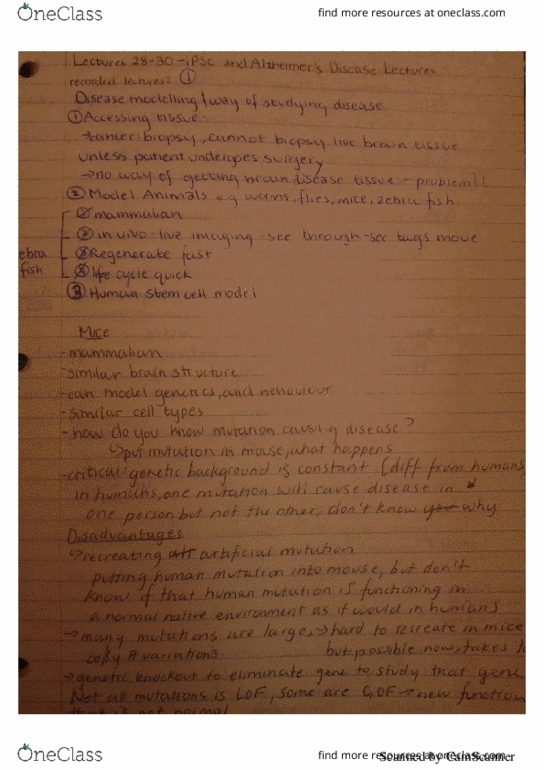 OneClass
find more resources at oneclass.com
Lectures 28-30 - iPSC and Alzheimer's Disease Lectures
recorded lectures: ①
Disease modelling / way of studying disease
① Accessing tissue:
→cancer: biopsy, cannot biopsy live brain tissue
unless patient undergoes surgery
→no way of getting brain disease tissue - problem!!
② Model Animals e.g worms, flies, mice, zebra fish
① mammalian
② in vivo-live imaging -see through-see tags move
ebra
③ Regenerate fast
fish
life cycle quick
③ Human Stem cell model
Mice
-mammalian
-similar brain structure
-can model genetics, and behaviour
-similar cell types
-how do you know mutation causing disease?
↳put mutation in mouse, what happens
-critical: genetic background is constant (diff from humans
in humans, one mutation will cause disease in
one person but not the other, don't know why
Disadvantages
↳recreating artificial mutation
putting human mutation into mouse, but don't
know if that human mutation is functioning in
a normal native environment as it would in humans
→many mutations are large, →hard to recreate in mice
copy # variations but possible now, takes
→genetic knockout to eliminate gene to study that gene
Not all mutations is LOF, some are GOF →new function
that is not normal
OneClass
find more resources at oneclass.com
Scanned by CamScanner